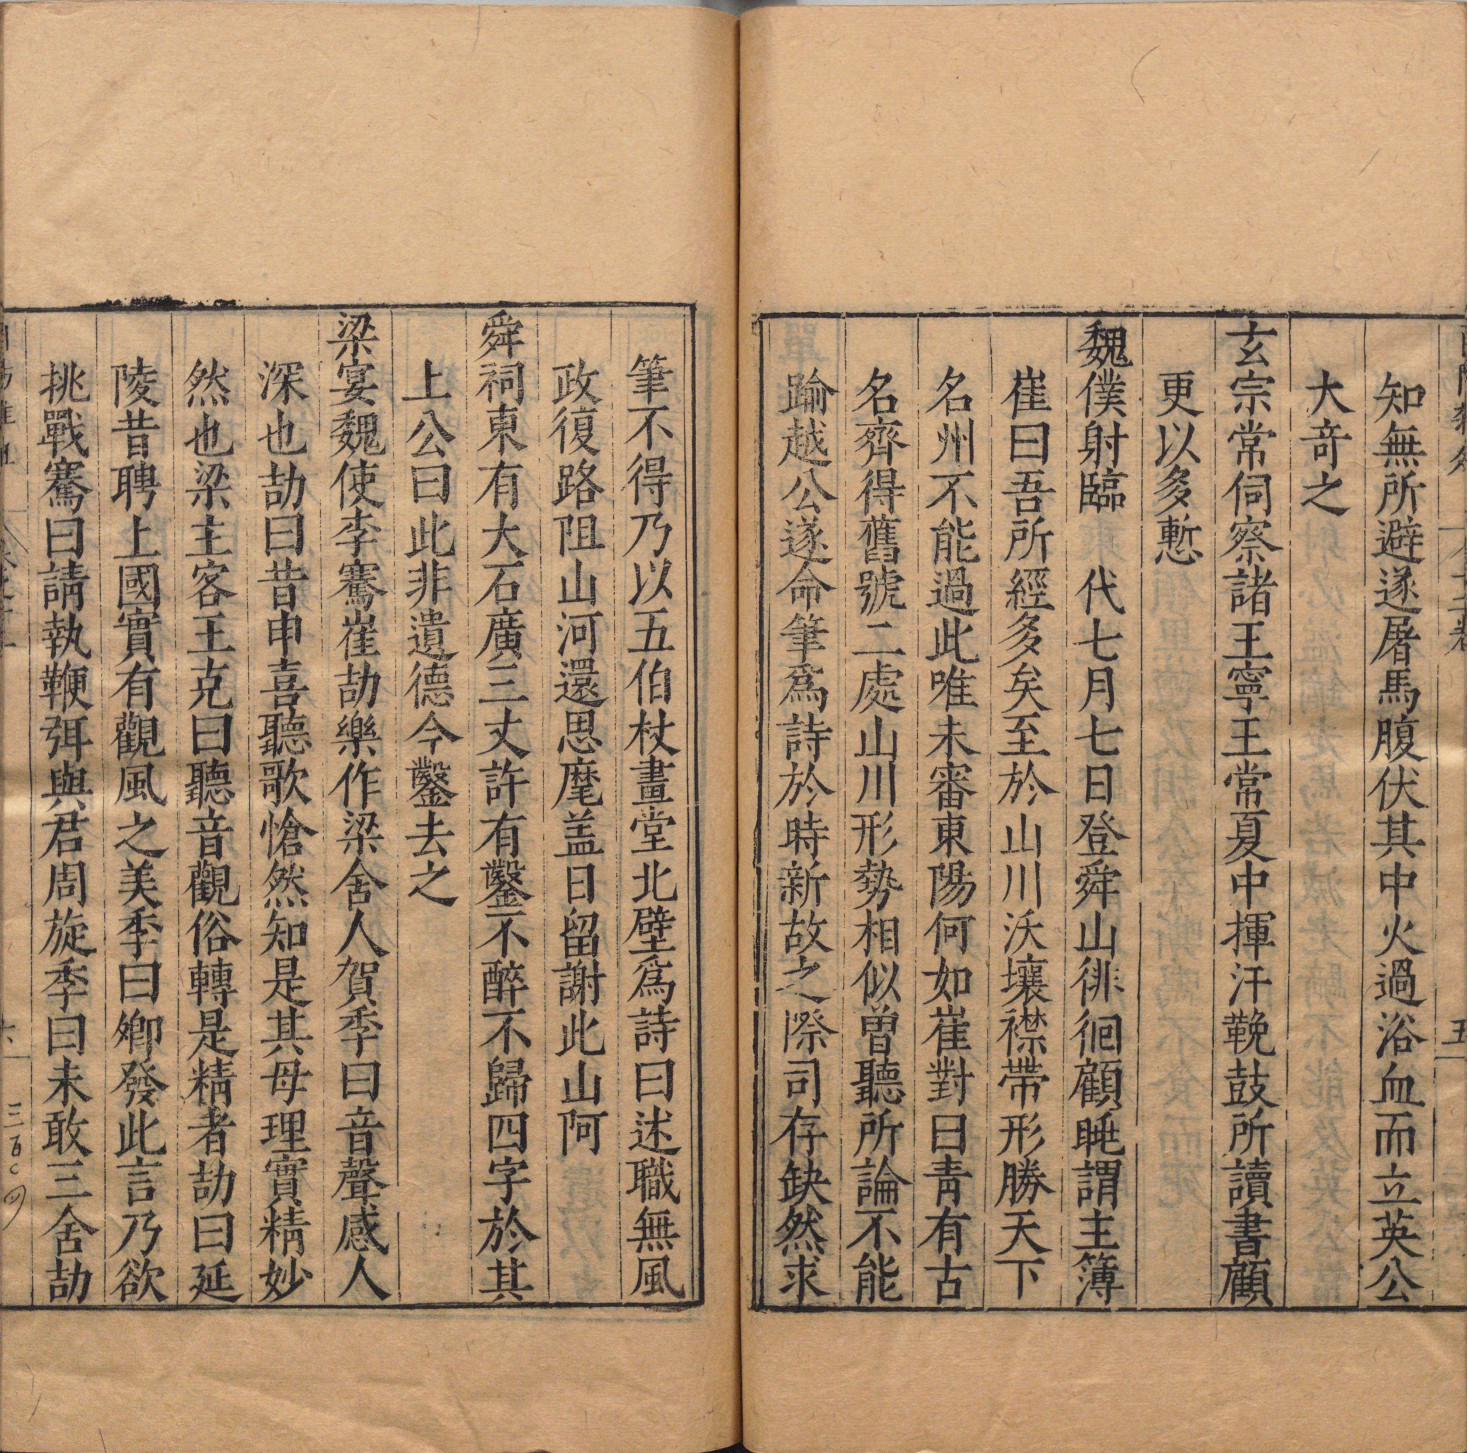 酉陽雜俎 卷十二 五
知無所避遂屠馬腹伏其中火過浴血而立英公
大奇之
玄宗常伺察諸王寧王常夏中揮汗鞔鼓所讀書顧
更以多慙
魏僕射臨 代七月七日登舜山徘徊顧眺謂主簿
崔曰吾所經多矣至於山川沃壤襟帶形勝天下
名州不能過此唯未審東陽何如崔對曰青有古
名齊得舊號二處山川形勢相似曾聽所論不能
踰越公遂命筆爲詩於時新故之際司存缺然求
筆不得乃以五伯杖畫堂北壁爲詩曰述職無風
政復路阻山河還思麾盖日留謝此山阿
舜祠東有大石廣三丈許有鑿不醉不歸四字於其
上公曰此非遺德今鑿去之
梁宴魏使李騫崔劼樂作梁舍人賀季曰音聲感人
深也劼曰昔申喜聽歌愴然知是其母理實精妙
然也梁主客王克曰聽音觀俗轉是精者劼曰延
陵昔聘上國實有觀風之美季曰卿發此言乃欲
挑戰騫曰請執鞭弭與君周旋季曰未敢三舍劼
六 三百〇四